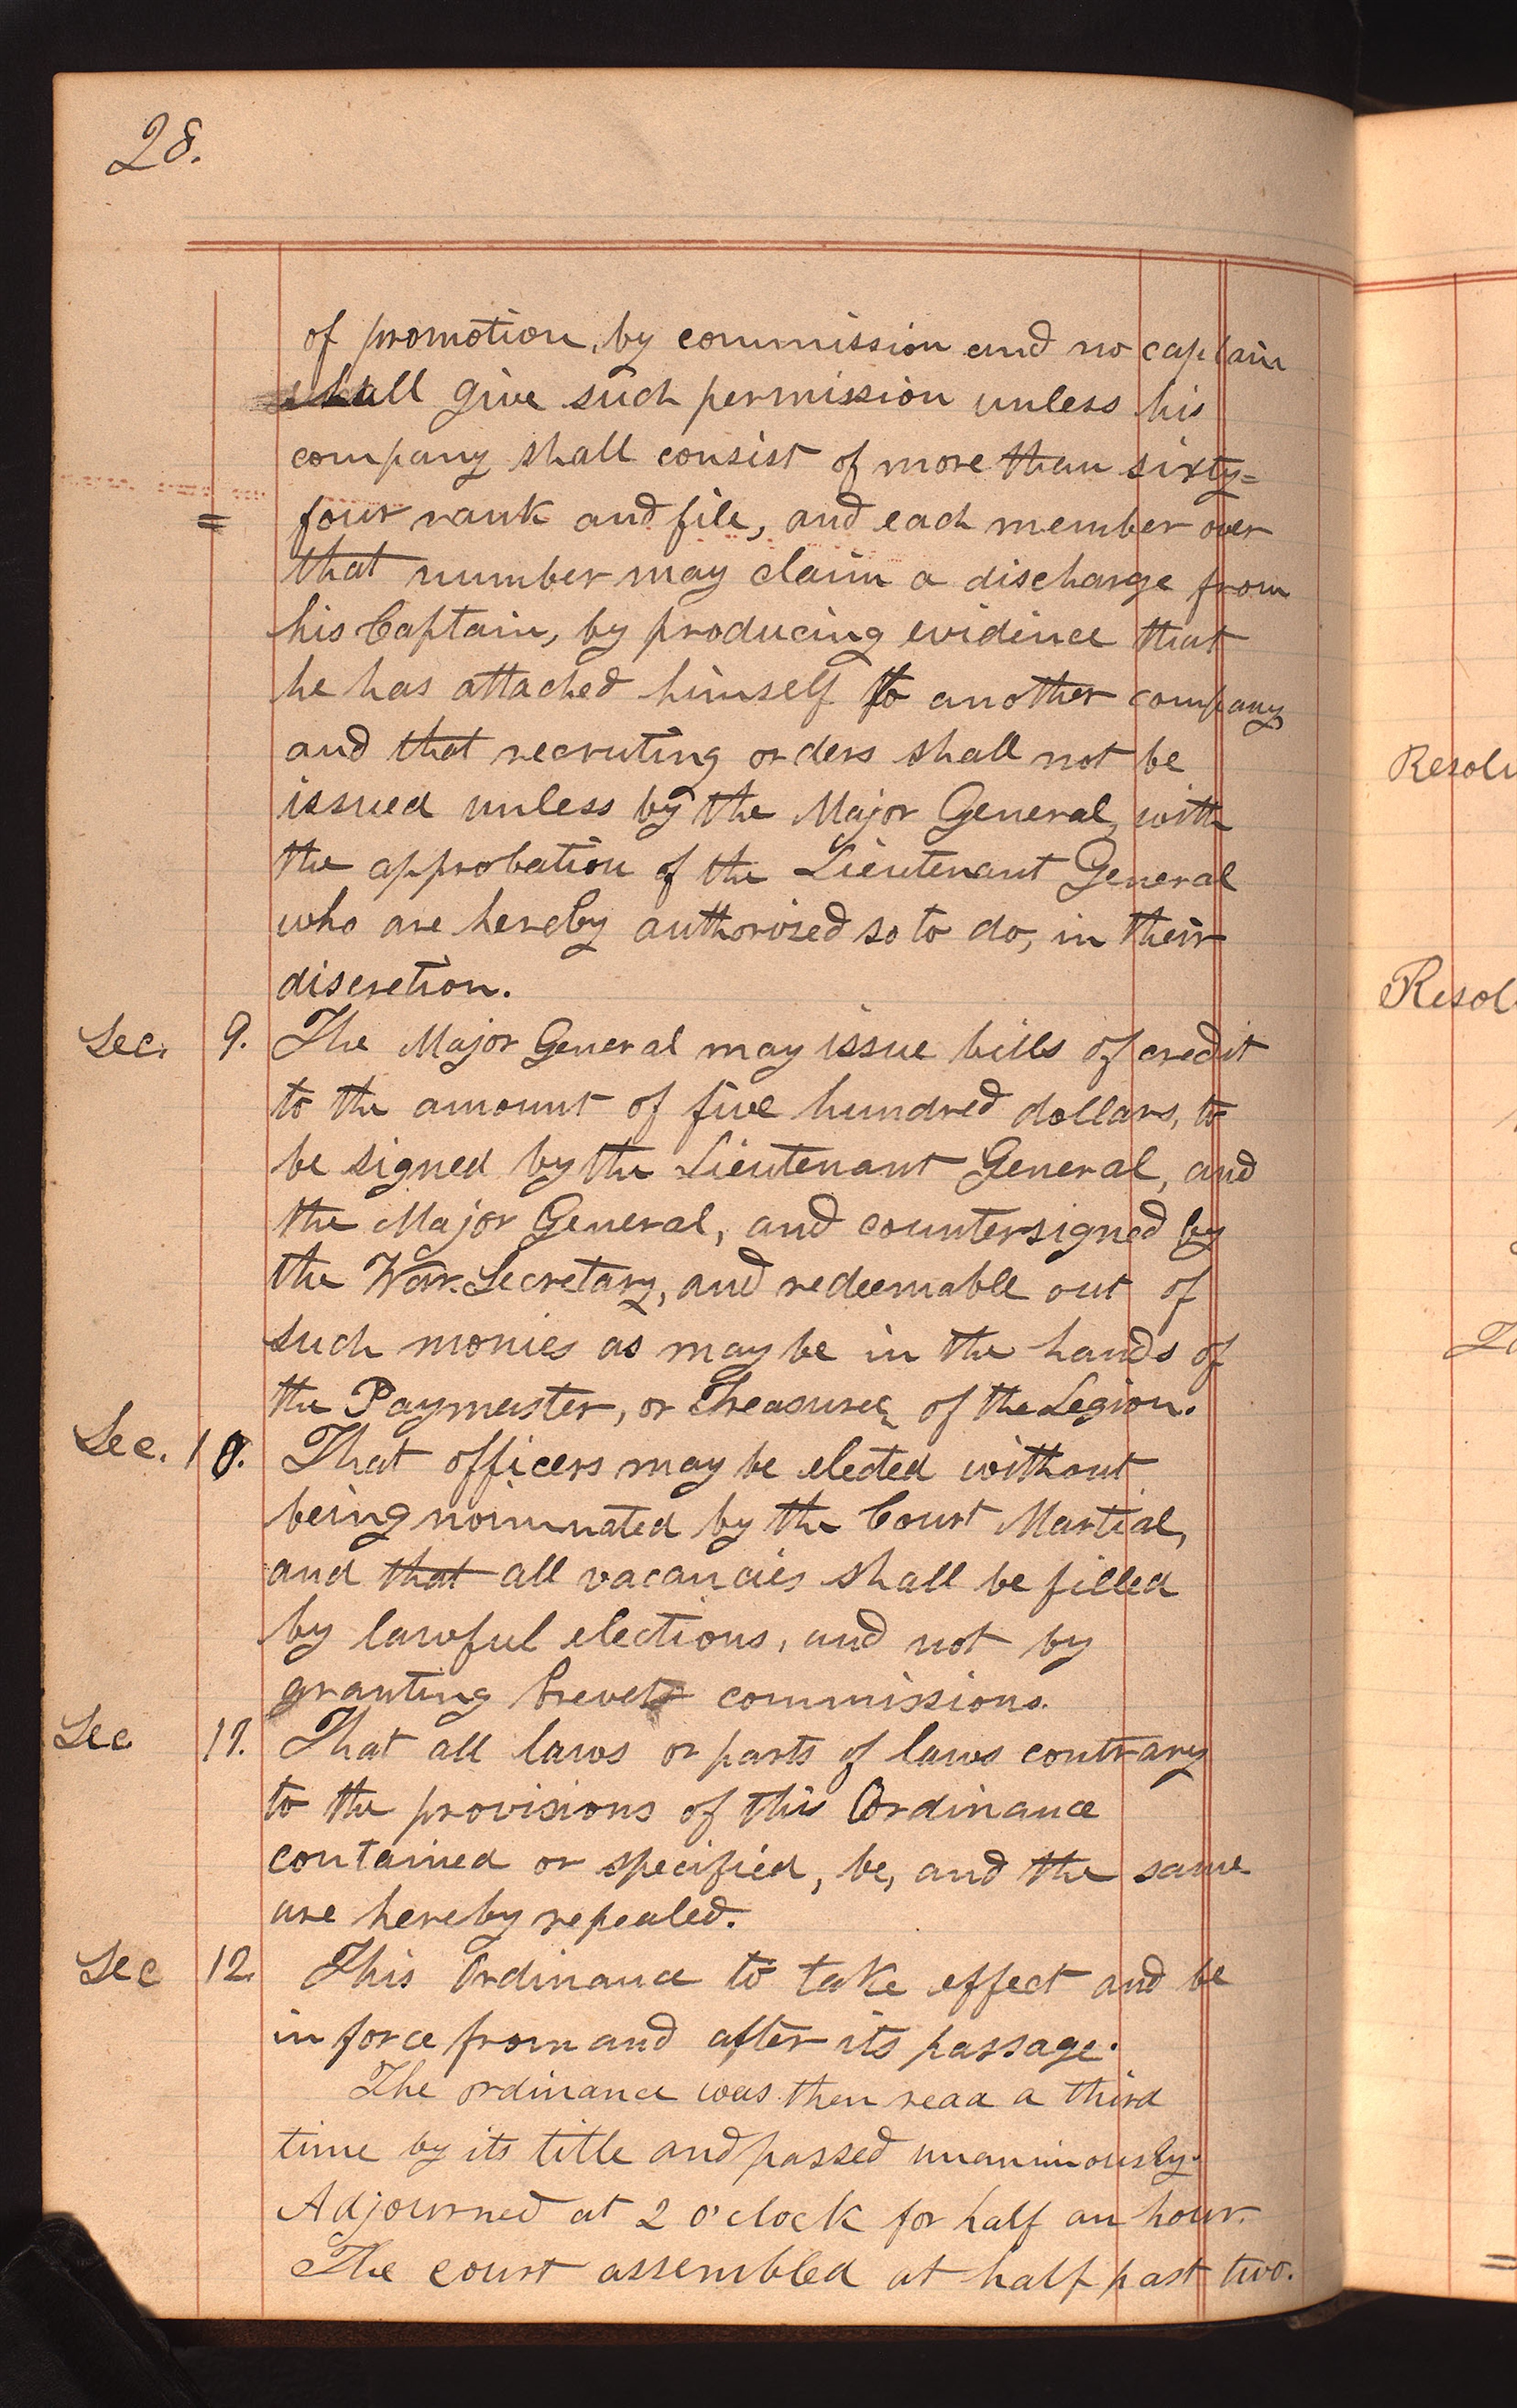 28.
of promotion, by commission and no captain
shall give such permission unless his
company shall consist of more than sixty=
= four rank and file, and each member over
that number may claim a discharge from
his Captain, by producing evidence that
he has attached himself to another company
and that recruting orders shall not be
issued unless by the Major General, with
the approbation of the Lieutenant General
who are hereby authorized so to do, in their
discretion.
Sec. 9. The Major General may issue bills of credit
to the amount of five hundred dollars, to
be signed by the Lieutenant General, and
the Major General, and countersigned by
the War-Secretary, and redeemable out of
such monies as may be in the hands of
the Paymaster, or Treasurer of the Legion.
Sec. 10. That officers may be elected without
being nominated by the Court Martial,
and that all vacancies shall be filled
by lawful elections, and not by
granting brevet commissions.
Sec 11. That all laws or parts of laws contrary
to the provisions of this Ordinance
contained or specified, be, and the same
are hereby repealed.
Sec 12. This Ordinance to take effect and be
in force from and after its passage.
The ordinance was then read a third
time by its title and passed unanimously.
Adjourned at 2 o'clock for half an hour.
The court assembled at half past two.
Resol
Resol
=